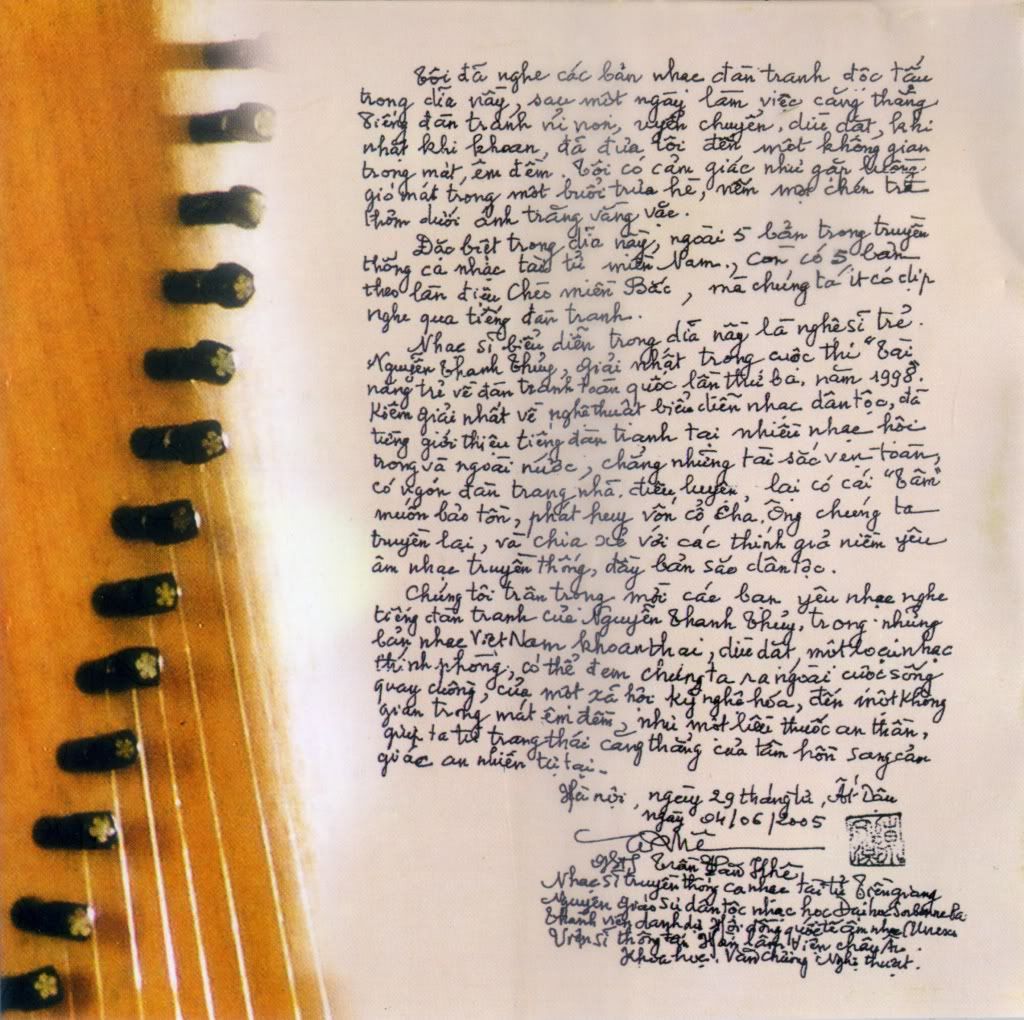 Tôi đã nghe các bản nhạc đàn tranh độc tấu
trong dĩa nầy, sau một ngày làm việc căng thẳng
Tiếng đàn tranh nỉ non, uyển chuyển, dìu dặt, khi
nhặt khi khoan, đã đưa tôi đến một không gian
trong mát, êm đềm. Tôi có cảm giác như gặp luồng
gió mát trong một buổi trưa hè, nếm một chén trà
thơm dưới ánh trăng vằng vặc.
Đặc biệt trong dĩa nầy, ngoài 5 bản trong truyền
thống ca nhạc tài tử miền Nam., còn có 5 bản
theo làn điệu Chèo miền Bắc, mà chúng ta ít có dịp
nghe qua tiếng đàn tranh.
Nhạc sĩ biểu diễn trong dĩa nầy là nghệ sĩ trẻ.
Nguyễn Thanh Thủy, giải nhất trong cuộc thi "Tài
năng trẻ về đàn tranh toàn quốc lần thứ ba, năm 1998.
Kiêm giải nhất về nghệ thuật biểu diễn nhạc dân tộc, đã
từng giới thiệu tiếng đàn tranh tại nhiều nhạc hội
trong và ngoài nước, chẳng những tài sắc vẹn toàn,
có ngón đàn trang nhã, điêu luyện, lại có cái "Tâm"
muốn bảo tồn, phát huy vốn cổ Cha, Ông chúng ta
truyền lại, và chia xẻ với các thính giả niềm yêu
âm nhạc truyền thống, đầy bản sắc dân tộc.
Chúng tôi trân trọng mời các bạn yêu nhạc nghe
tiếng đàn tranh của Nguyễn Thanh Thủy, trong những
bản nhạc Việt Nam khoan thai, dìu dặt, một loại nhạc
thính phòng, có thể đem chúng ta ra ngoài cuộc sống
quay cuồng, của một xã hội kỹ nghệ hóa, đến một không
gian trong mát êm đềm, như một liều thuốc an thần,
giúp ta từ trạng thái căng thẳng của tâm hồn sang cảm
giác an nhiên tự tại.
Hà nội, ngày 29 tháng tư, Ất Dậu
ngày 04/06/2005
Trần Văn Khê
Nhạc sĩ truyền thống ca nhạc tài tử Tiền giang
Nguyên giáo sư dân tộc nhạc học Đại học Sorbonne Pa
Thành viên danh dự Hội đồng quốc tế âm nhạc (Unesco
Viện sĩ thông tấn Hàn lâm Viện châu Âu
Khoa học, Văn chương Nghệ thuật.